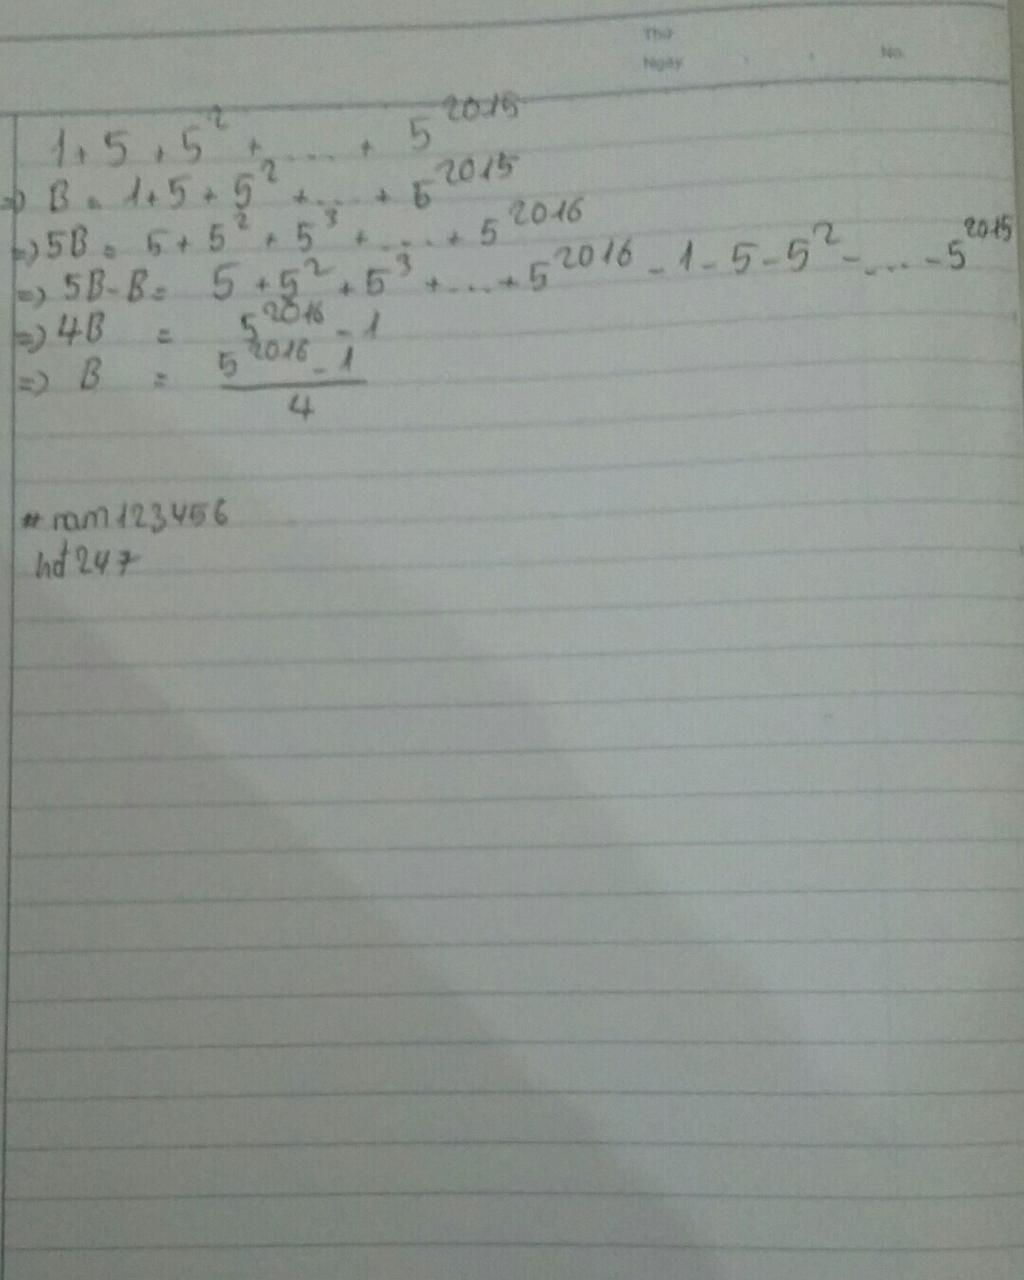 Thứ
Ngày No.
1 + 5 + 5² + .... + 5²⁰¹⁵
=> B = 1 + 5 + 5² + .... + 5²⁰¹⁵
=> 5B = 5 + 5² + 5³ + .... + 5²⁰¹⁶
=> 5B - B = 5 + 5² + 5³ + .... + 5²⁰¹⁶ - 1 - 5 - 5² - .... - 5²⁰¹⁵
=> 4B = 5²⁰¹⁶ - 1
=> B = 5²⁰¹⁶ - 1
4
# ram123456
hd247